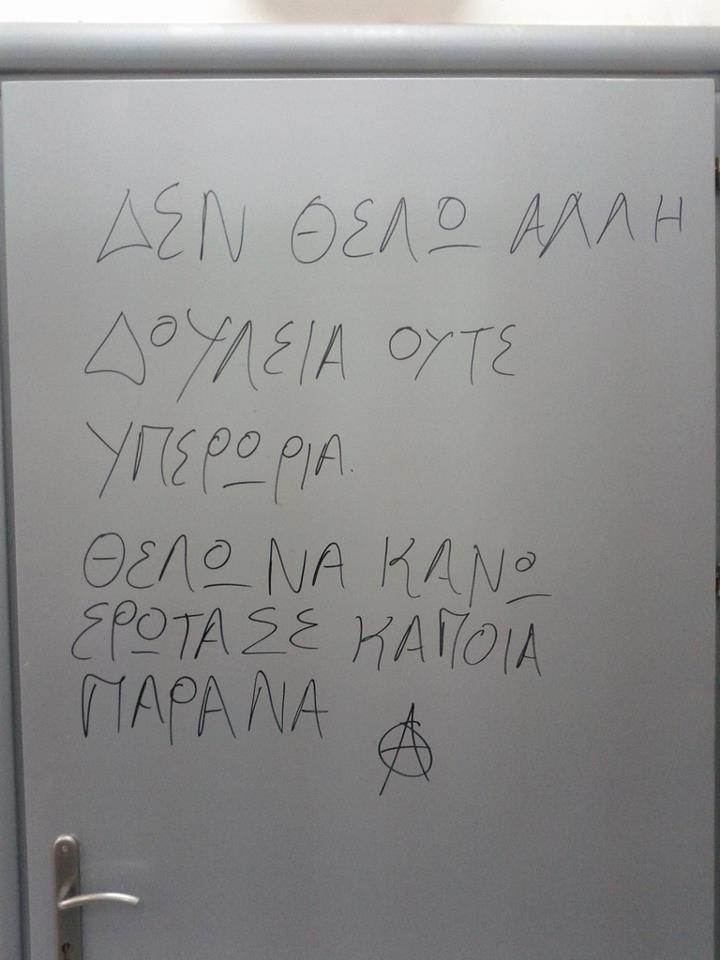 ΔΕΝ ΘΕΛΩ ΑΛΛΗ
ΔΟΥΛΕΙΑ ΟΥΤΕ
ΥΠΕΡΩΡΙΑ.
ΘΕΛΩ ΝΑ ΚΑΝΩ
ΕΡΩΤΑ ΣΕ ΚΑΠΟΙΑ
ΠΑΡΑΝΑ Ⓐ